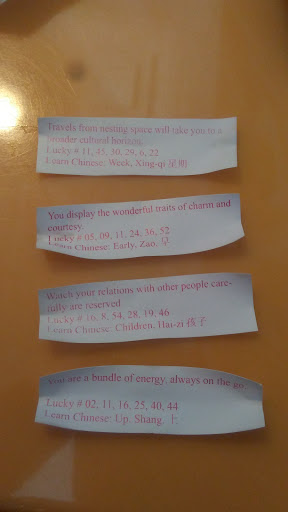 Travels from nesting space will take you to a
broader cultural horizon.
Lucky # 11, 45, 30, 29, 6, 22
Learn Chinese: Week, Xing-qi 星期
You display the wonderful traits of charm and
courtesy.
Lucky # 05, 09, 11, 24, 36, 52
Learn Chinese: Early, Zao, 早
Watch your relations with other people care-
fully are reserved
Lucky # 16, 8, 54, 28, 19, 46
Learn Chinese: Children, Hai-zi 孩子
You are a bundle of energy, always on the go.
Lucky # 02, 11, 16, 25, 40, 44
Learn Chinese: Up, Shang, 上